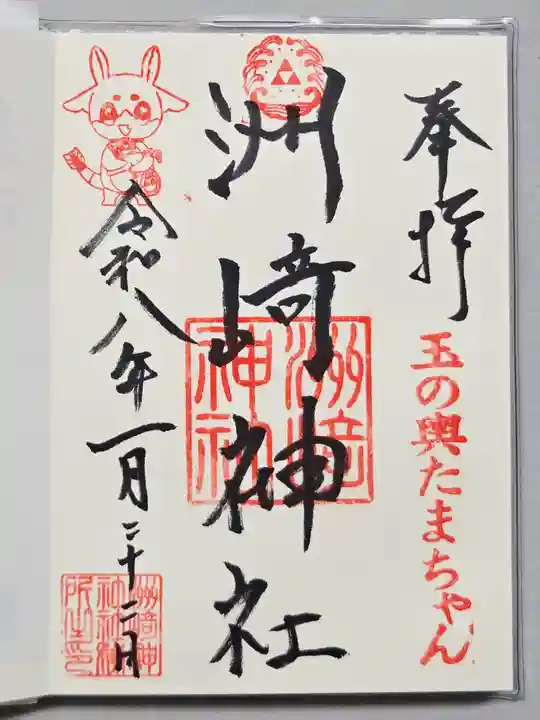 奉拝
玉の輿たまちゃん
洲崎神社
洲崎神社
令和八年一月二十二日
洲崎神社社務所之印